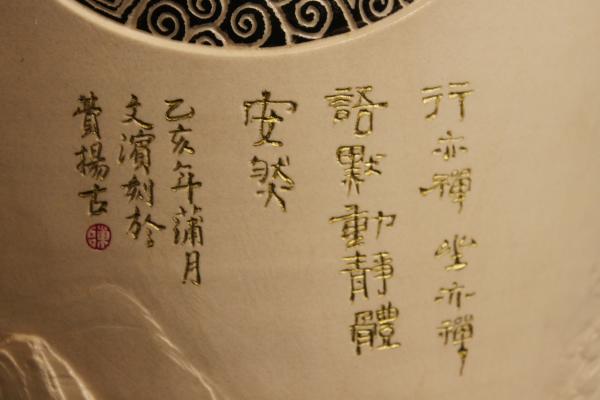 行亦禪坐亦禪
語默動靜體
安然
乙亥年蒲月
文濱刻於
費揚古